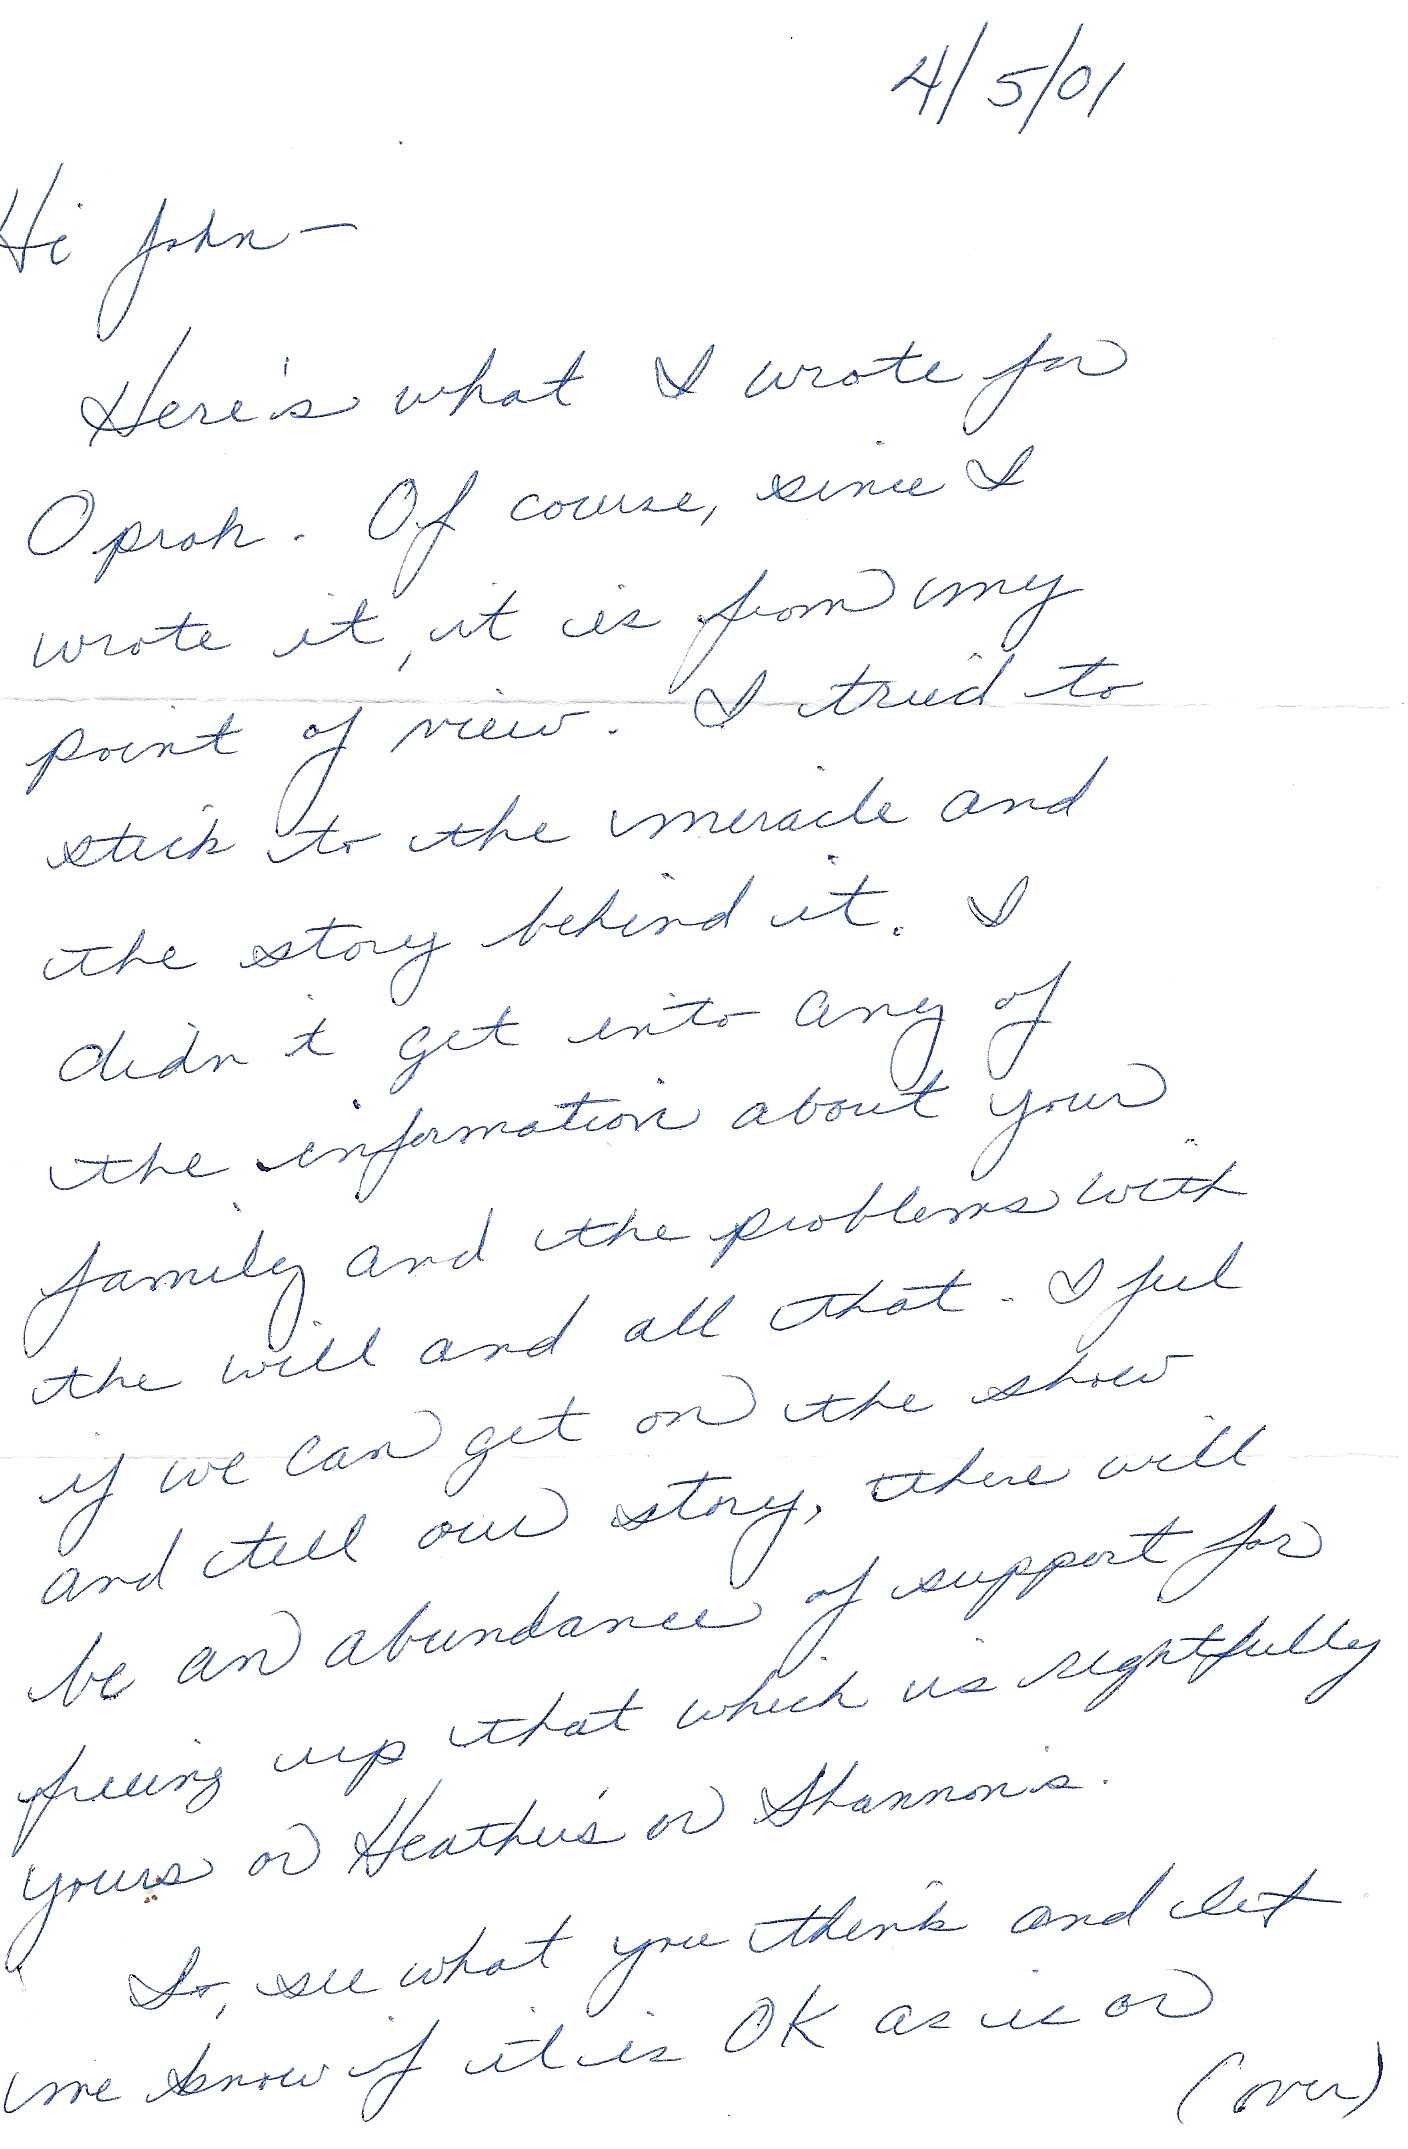 4/5/01
Hi John—
Here's what I wrote for
Oprah. Of course, since I
wrote it, it is from my
point of view. I tried to
stick to the miracle and
the story behind it. I
didn't get into any of
the information about your
family and the problems with
the will and all that. I feel
if we can get on the show
and tell our story, there will
be an abundance of support for
freeing up that which is rightfully
yours or Heather's or Shannon's.
So, see what you think and let
me know if it is OK as is or
(over)